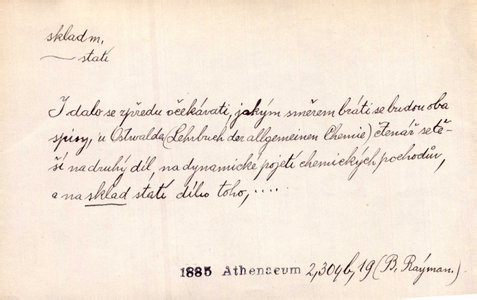 sklad m,
statí
I dalo se zpředu očekávati, jakým směrem bráti se budou oba
spisy, u Ostwalda (Lehrbuch der allgemeinen Chemie) čtenář se tě-
ší na druhý díl, na dynamické pojetí chemických pochodův,
a na sklad statí dílu toho, . . . .
1885 Athenaeum 2, 304b, 19 (B. Raýman.)